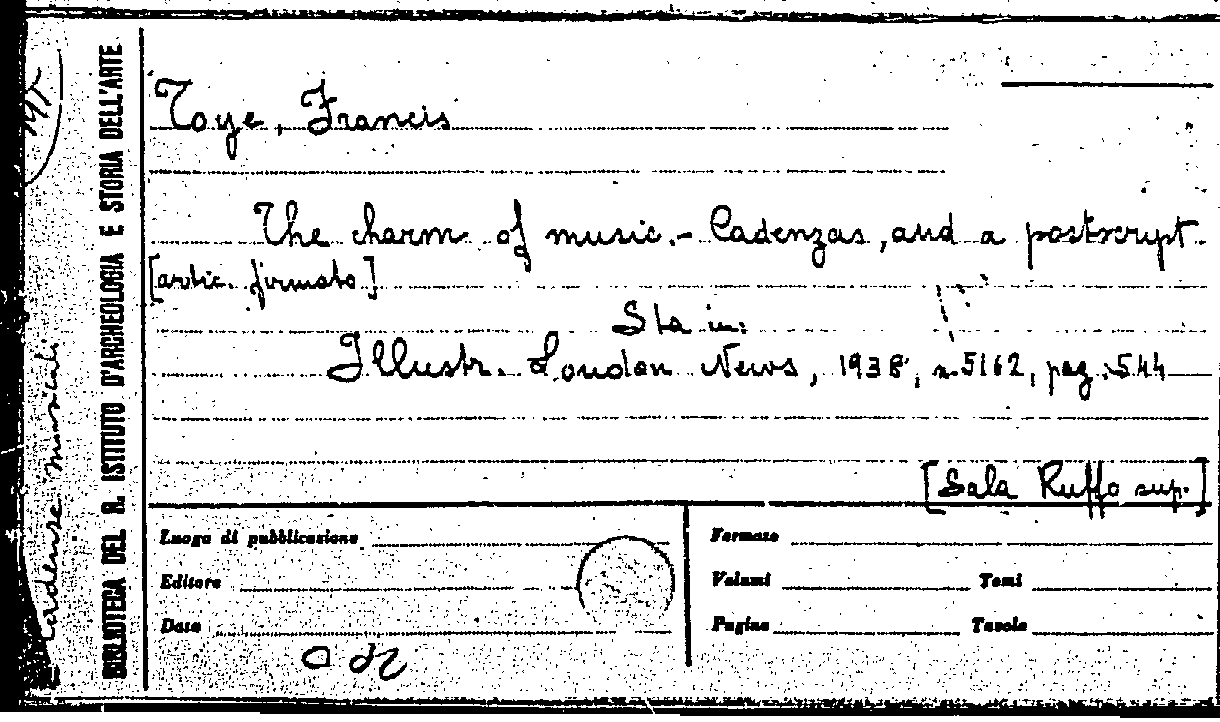 Toye, Francis
The charm of music.- Cadenzas, and a postscript
[artic. firmato]
Sta in:
Illustr. London News, 1938, n. 5162, pag. 544
[Sala Ruffo sup.]
Luogo di pubblicazione
Editore
Data
Formato
Volumi Tomi
Pagine Tavole
BIBLIOTECA DEL R. ISTITUTO D'ARCHEOLOGIA E STORIA DELL'ARTE
Cadenze musicali